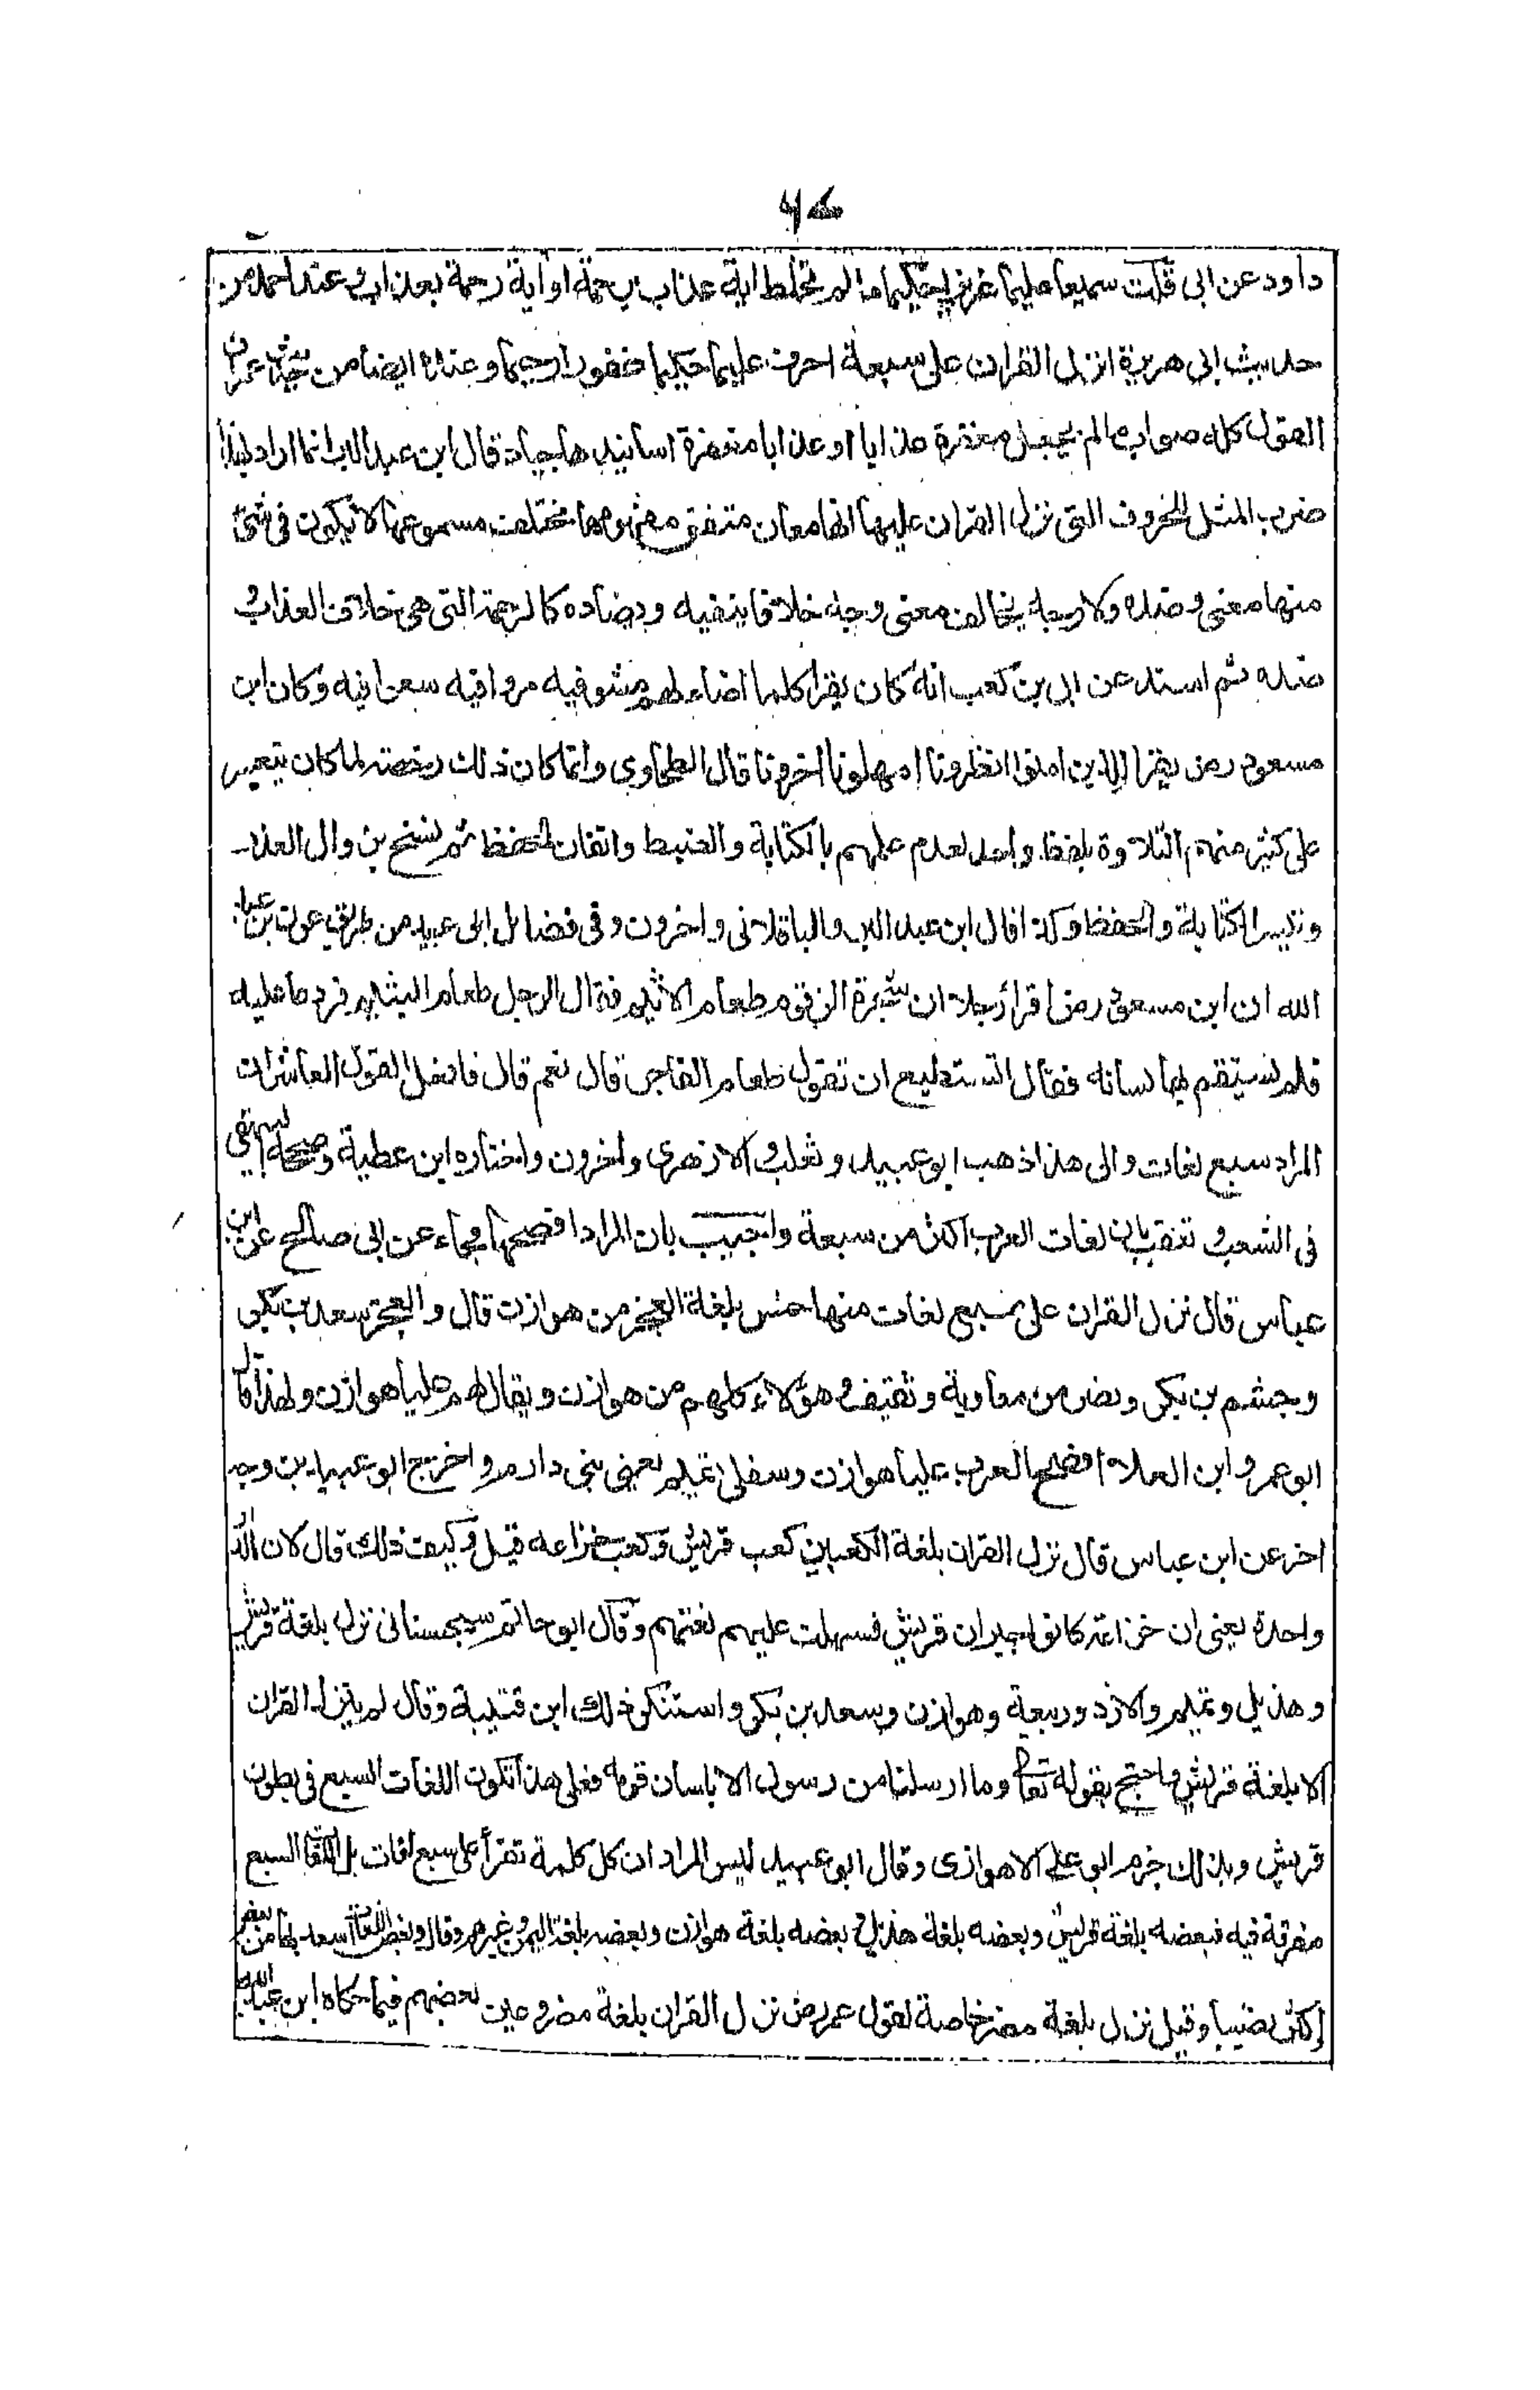 داود عن ابى قلت سميعا عليما عزيزا حكيما ما لم تخلط اية عذاب برحمة او اية رحمة بعذاب وعند احمد من
حديث ابى هريرة انزل القران على سبعة احرف عليما حكيما غفورا رحيما وعنده ايضا من حديث عمر بان
القول كله صواب ما لم يجعل مغفرة عذابا او عذابا مغفرة اسانيدها جياد قال ابن عبد البر انما اراد بهذا
ضرب المثل للحروف التى نزل القران عليها انها معان متفق مفهومها مختلف مسموعها لا يكون فى شئ
منها معنى وضده ولا وجه يخالف معنى وجه خلافا ينفيه ويضاده كالرحمة التى هى خلاف العذاب و
ضده ثم اسند عن ابى بن كعب انه كان يقرا كلما اضاء لهم مشوفيه مروافيه سعوافيه وكان ابن
مسعود رض يقرا للذين امنوا انظرونا امهلونا اخرونا قال الطحاوى وانما كان ذلك رخصة لما كان يتعسر
على كثير منهم التلاوة بلفظ واحد لعدم علمهم بالكتابة والضبط واتقان الحفظ ثم نسخ بزوال العذر
وتيسر الكتابة والحفظ وكذا قال ابن عبد البر والباقلانى واخرون وفى فضائل ابى عبيد من طريق عون بن عبد
الله ان ابن مسعود رض اقرا رجلا ان شجرة الزقوم طعام الاثيم فقال الرجل طعام اليثيم فردها عليه
فلم يستقم بها لسانه فقال اتستطيع ان تقول طعام الفاجر قال نعم قال فافعل القول العاشر ان
المراد سبع لغات والى هذا ذهب ابو عبيد وثعلب والازهرى واخرون واختاره ابن عطية وصححه البيهقى
فى الشعب وتعقب بان لغات العرب اكثر من سبعة واجيب بان المراد افصحها فجاء عن ابى صالح عن ابن
عباس قال نزل القران على سبع لغات منها خمس بلغة العجز من هوازن قال والعجز سعد بن بكر
وجشم بن بكر ونضر من معاوية وثقيف وهؤلاء كلهم من هوازن ويقال لهم عليا هوازن ولهذا قال
ابو عمرو ابن العلاء افصح العرب عليا هوازن وسفلى تميم يعنى بنى دارم واخرج ابو عبيد من وجه
اخر عن ابن عباس قال نزل القران بلغة الكعبين كعب قريش وكعب خزاعه قيل وكيف ذلك قال لان الدار
واحدة يعنى ان خزاعة كانوا جيران قريش فسهلت عليهم لغتهم وقال ابو حاتم سجستانى نزل بلغة قريش
وهذيل وتميم والازد وربيعة وهوازن وسعد بن بكر واستنكر ذلك ابن قتيبة وقال لم ينزل القران
الا بلغة قريش واحتج بقوله تعا وما ارسلنا من رسول الا بلسان قومه فعلى هذا تكون اللغات السبع فى بطون
قريش وبذلك جزم ابو على الاهوازى وقال ابو عبيد ليس المراد ان كل كلمة تقرأ على سبع لغات بل اللغات السبع
مفرقة فيه فبعضه بلغة قريش وبعضه بلغة هذيل وبعضه بلغة هوازن وبعضه بلغة اليمن وغيرهم وقال وبعض اللغات اسعد بها من بعض
واكثر نصيبا وقيل نزل بلغة مضر خاصة لقول عمر رض نزل القران بلغة مضر وعين بعضهم فيما حكاه ابن عبد البر